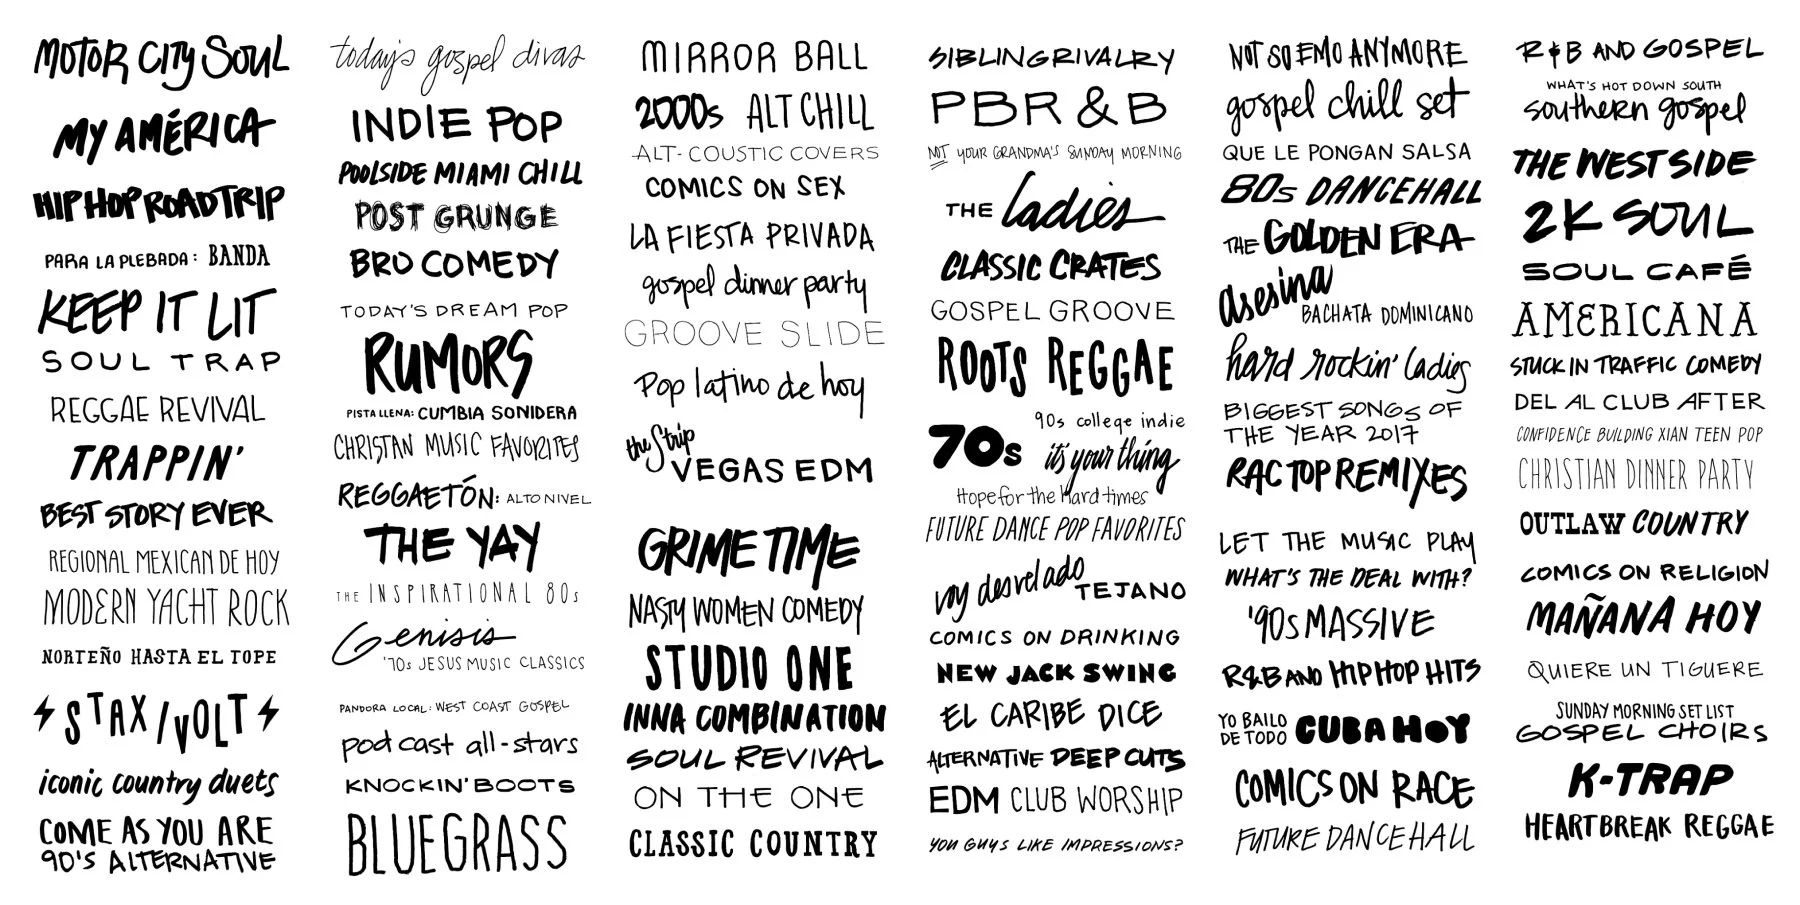 MOTOR CITY SOUL
MY AMÉRICA
HIP HOP ROAD TRIP
PARA LA PLEBADA: BANDA
KEEP IT LIT
SOUL TRAP
REGGAE REVIVAL
TRAPPIN'
BEST STORY EVER
REGIONAL MEXICAN DE HOY
MODERN YACHT ROCK
NORTEÑO HASTA EL TOPE
STAX/VOLT
iconic country duets
COME AS YOU ARE
90'S ALTERNATIVE
today's gospel divas
INDIE POP
POOLSIDE MIAMI CHILL
POST GRUNGE
BRO COMEDY
TODAY'S DREAM POP
RUMORS
PISTA LLENA: CUMBIA SONIDERA
CHRISTAN MUSIC FAVORITES
REGGAETÓN: ALTO NIVEL
THE YAY
THE INSPIRATIONAL 80s
Genisis
'70s JESUS MUSIC CLASSICS
PANDORA LOCAL: WEST COAST GOSPEL
podcast all-stars
KNOCKIN' BOOTS
BLUEGRASS
MIRROR BALL
2000s ALT CHILL
ALT-COUSTIC COVERS
COMICS ON SEX
LA FIESTA PRIVADA
gospel dinner party
GROOVE SLIDE
Pop latino de hoy
the Strip
VEGAS EDM
GRIME TIME
NASTY WOMEN COMEDY
STUDIO ONE
INNA COMBINATION
SOUL REVIVAL
ON THE ONE
CLASSIC COUNTRY
SIBLING RIVALRY
PBR & B
NOT YOUR GRANDMA'S SUNDAY MORNING
THE Ladies
CLASSIC CRATES
GOSPEL GROOVE
ROOTS REGGAE
90s college indie
70s it's your thing
Hope for the hard times
FUTURE DANCE POP FAVORITES
voy desvelado
TEJANO
COMICS ON DRINKING
NEW JACK SWING
EL CARIBE DICE
ALTERNATIVE DEEP CUTS
EDM CLUB WORSHIP
YOU GUYS LIKE IMPRESSIONS?
NOT SO EMO ANYMORE
gospel chill set
QUE LE PONGAN SALSA
80s DANCEHALL
THE GOLDEN ERA
asesina
BACHATA DOMINICANO
hard rockin' ladies
BIGGEST SONGS OF
THE YEAR 2017
RAC TOP REMIXES
LET THE MUSIC PLAY
WHAT'S THE DEAL WITH?
'90s MASSIVE
R&B AND HIP HOP HITS
YO BAILO
DE TODO CUBA HOY
COMICS ON RACE
FUTURE DANCEHALL
R&B AND GOSPEL
WHAT'S HOT DOWN SOUTH
southern gospel
THE WEST SIDE
2K SOUL
SOUL CAFÉ
AMERICANA
STUCK IN TRAFFIC COMEDY
DEL AL CLUB AFTER
CONFIDENCE BUILDING XIAN TEEN POP
CHRISTIAN DINNER PARTY
OUTLAW COUNTRY
COMICS ON RELIGION
MAÑANA HOY
QUIERE UN TIGUERE
SUNDAY MORNING SET LIST
GOSPEL CHOIRS
K-TRAP
HEARTBREAK REGGAE